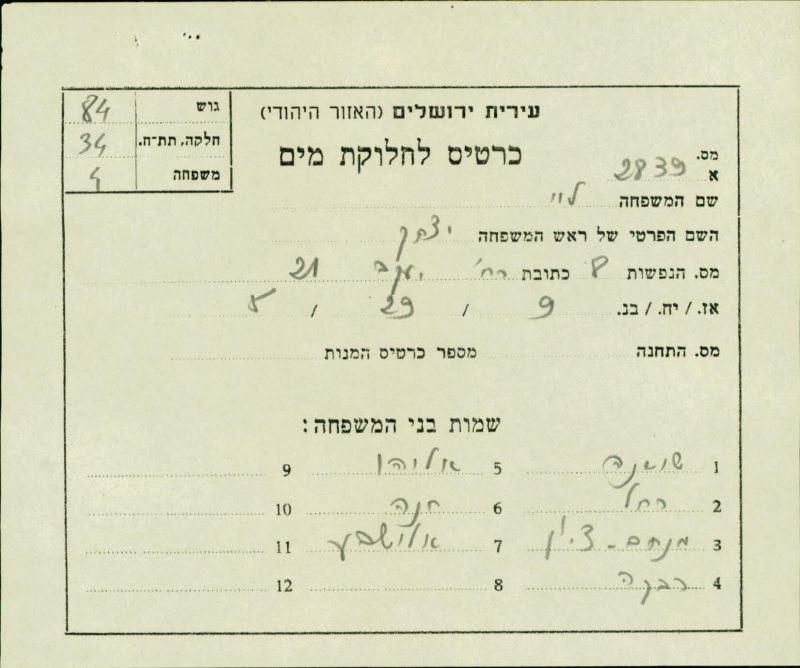 גוש 84
חלקה, תת-ח. 34
משפחה 4
עירית ירושלים (האזור היהודי)
כרטיס לחלוקת מים
מס. א 2839
שם המשפחה לוי
השם הפרטי של ראש המשפחה יצחק
מס. הנפשות 8 כתובת רח' יעקב 21
אז. / יח. / בנ. 9 / 29 /
מס. התחנה מספר כרטיס המנות
שמות בני המשפחה:
1 שושנה 5 אליהו 9
2 רחל 6 חנה 10
3 מנחם-ציון 7 אלישבע 11
4 רבקה 8 12